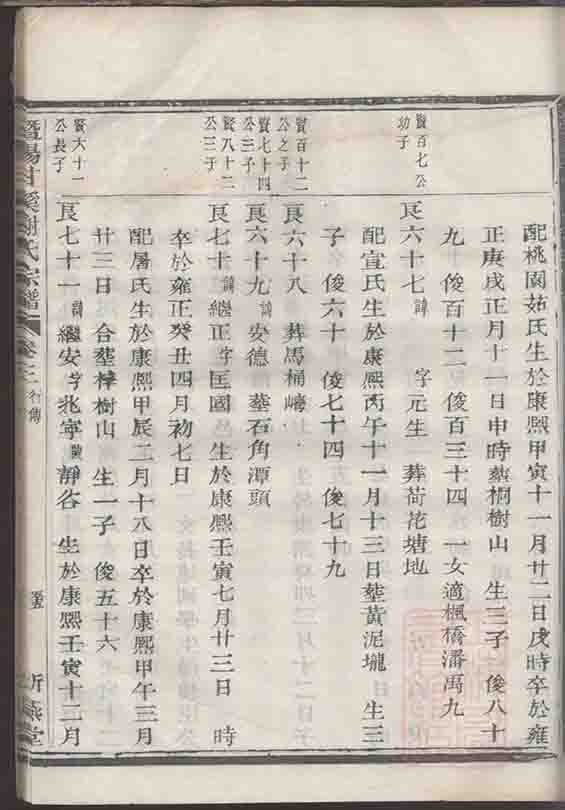 配桃園茹氏生於康熙甲寅十一月廿二日戌時卒於雍
正庚戌正月十一日申時葬桐樹山 生三子 俊八十
九 俊百十二 俊百三十四 一女適楓橋潘禹九
賢百七公
幼子
良六十七 諱 字元生 葬荷花塘地
配宣氏生於康熙丙午十一月十三日塟黄泥壠 生三
子 俊六十 俊七十四 俊七十九
賢百十二
公之子
良六十八 葬馬桶
賢七十四
公三子
良六十九 諱安德 塟石角潭頭
賢八十二
公三子
良七十 諱繼正 字匡國 生於康熙壬寅七月廿三日 時
卒於雍正癸丑四月初七日
配屠氏生於康熙甲辰二月十八日卒於康熙甲午三月
廿三日 合塟梓樹山 生一子 俊五十六
賢六十一
公長子
良七十一 諱繼安 字兆寧 號靜谷 生於康熙壬寅十二月
暨陽甘溪謝氏宗譜 卷之二 行傳